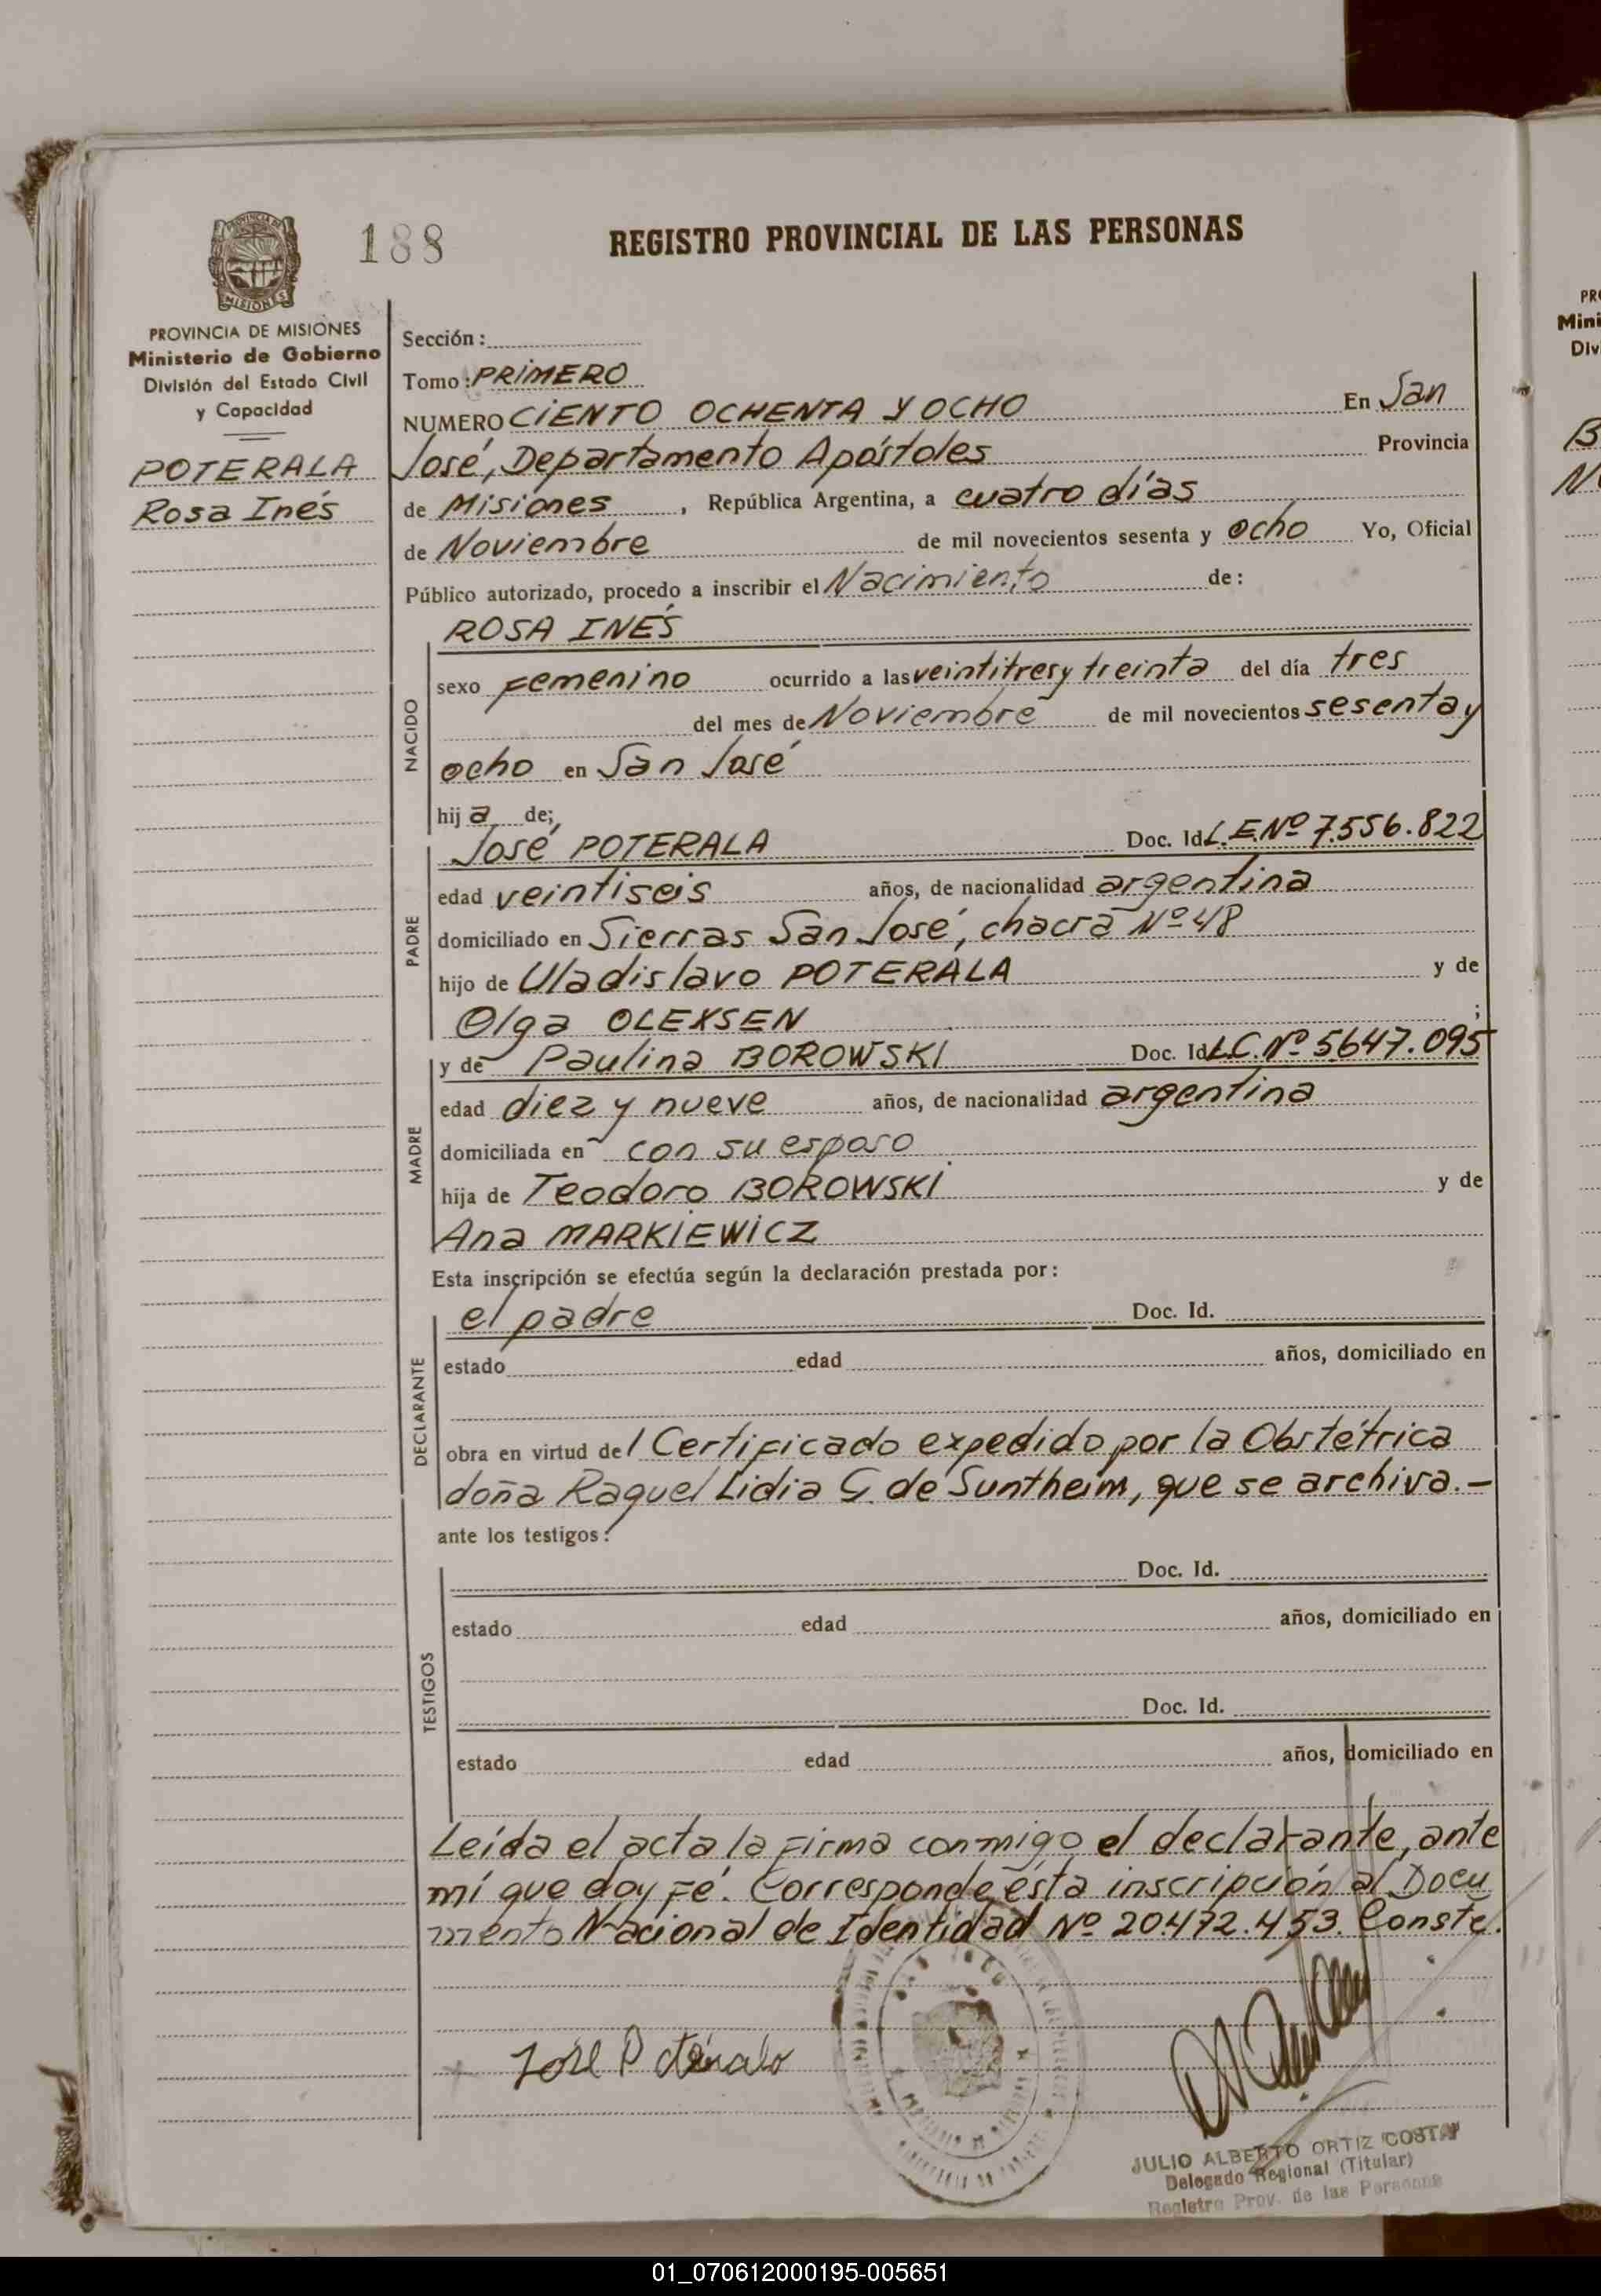 188
REGISTRO PROVINCIAL DE LAS PERSONAS
PROVINCIA DE MISIONES
Ministerio de Gobierno
División del Estado Civil
y Capacidad
POTERALA
Rosa Inés
Sección:
Tomo: PRIMERO
NUMERO CIENTO OCHENTA Y OCHO En San
José, Departamento Apóstoles Provincia
de Misiones, República Argentina, a cuatro días
de Noviembre de mil novecientos sesenta y ocho Yo, Oficial
Público autorizado, procedo a inscribir el Nacimiento de:
NACIDO
ROSA INÉS
sexo Femenino ocurrido a las veintitres y treinta del día tres
del mes de Noviembre de mil novecientos sesenta y
ocho en San José
hija de;
PADRE
José POTERALA Doc. Id. L.E.Nº 7.556.822
edad veintiseis años, de nacionalidad argentina
domiciliado en Sierras San José, chacra Nº 48
hijo de Uladislavo POTERALA y de
Olga OLEXSEN ;
MADRE
y de Paulina BOROWSKI Doc. Id. L.C.Nº 5.647.095
edad diez y nueve años, de nacionalidad argentina
domiciliada en con su esposo
hija de Teodoro BOROWSKI y de
Ana MARKIEWICZ
Esta inscripción se efectúa según la declaración prestada por:
DECLARANTE
el padre Doc. Id.
estado edad años, domiciliado en
obra en virtud del Certificado expedido por la Obstétrica
doña Raquel Lidia G. de Suntheim, que se archiva.-
ante los testigos:
TESTIGOS
Doc. Id.
estado edad años, domiciliado en
Doc. Id.
estado edad años, domiciliado en
Leída el acta la firma conmigo el declarante, ante
mí que doy fé. Corresponde ésta inscripción al Docu
mento Nacional de Identidad Nº 20.472.453. Conste.
José Poterala
JULIO ALBERTO ORTIZ COSTA
Delegado Regional (Titular)
Registro Prov. de las Personas
PR
Mini
Div
B
01_070612000195-005651